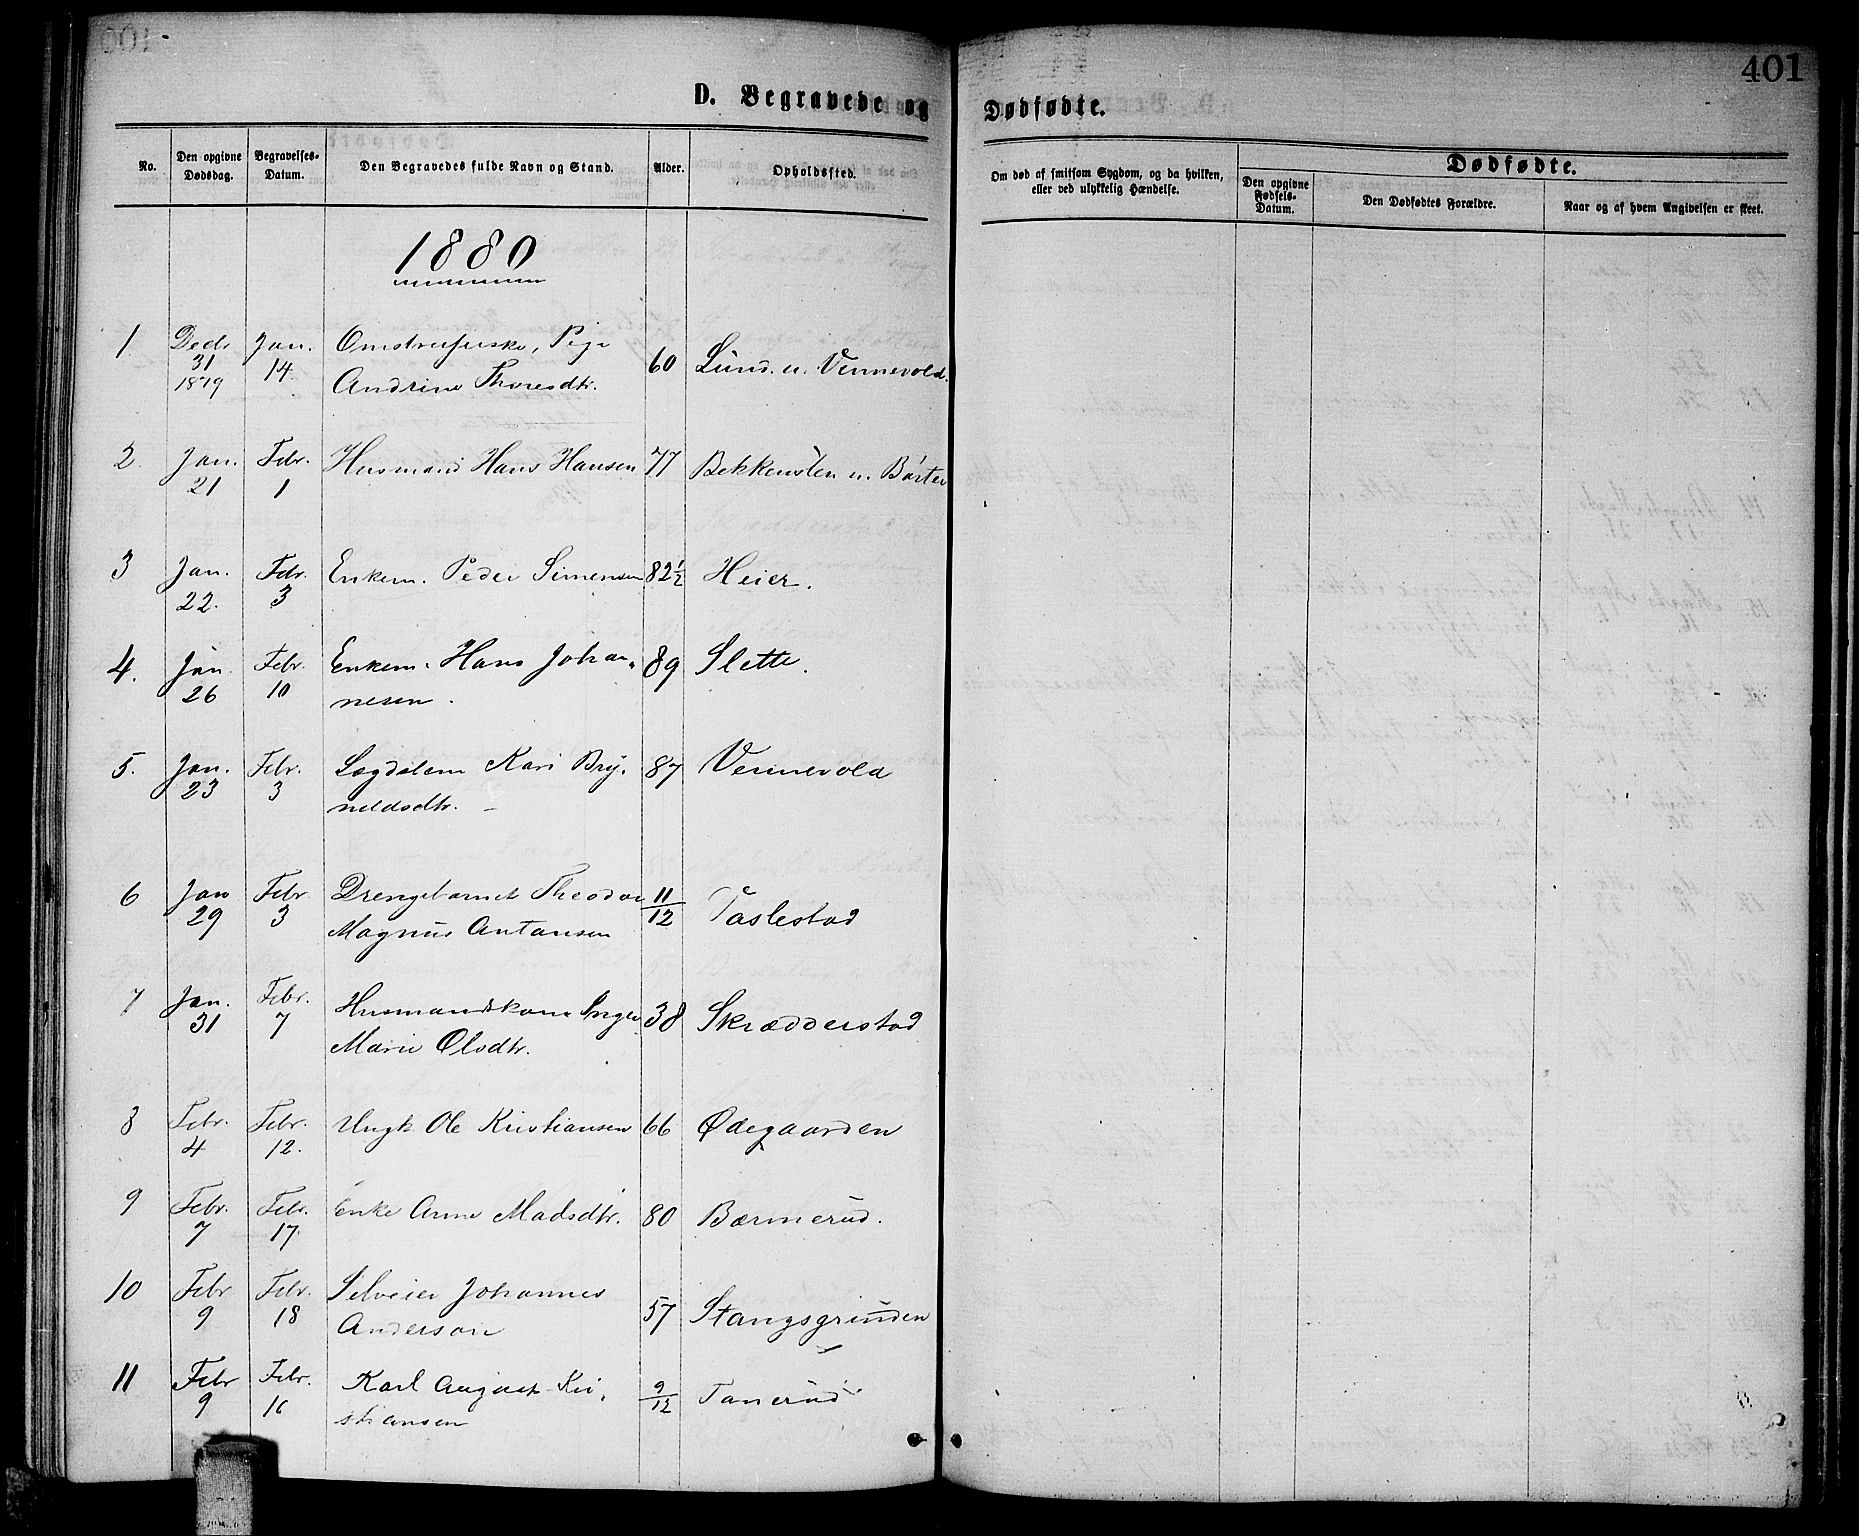 401
D. Begravede og Dødfødte.
No.
Den opgivne Dødsdag.
Begravelses-Datum.
Den Begravedes fulde Navn og Stand.
Alder.
Opholdsted.
Om død af smitsom Sygdom, og da hvilken, eller ved ulykkelig Hændelse.
Dødfødte.
Den opgivne Fødsels-Datum.
Den Dødfødtes Forældre.
Naar og af hvem Angivelsen er skeet.
1880
1. Decbr 31 1879 Jan. 14. Pige
Andrine Thoresdtr. 60 Lund u. Vennevold.
2. Jan. 21 Febr. 1 Husmand Hans Hansen 77 Bekkensten u. Børter
3 Jan. 22. Febr. 3 Enkem. Peder Simensen 82 1/2 Heier.
4. Jan. 26 Febr. 10 Enkem. Hans Johan-
nesen. 89 Slette.
5. Jan. 23 Febr. 3 Lægdslem Kari Bry-
nildsdtr. 87 Vennevold
6 Jan 29 Febr. 3 Drengebarnet Theodor
Magnus Antansen 11/12 Taslestad
7 Jan. 31 Febr. 7 Husmandskone Inger
Marie Olsdtr. 38 Skrædderstad
8 Febr. 4 Febr. 12. Ungk Ole Kristiansen 66 Ødegaarden
9 Febr. 7 Febr. 17. Enke Anne Madsdtr. 80 Bærmerud.
10 Febr 9 Febr. 18 Selveier Johannes
Anderson 57 Stangsgrinden
11 Febr 9 Febr. 16 Karl August Kri-
stiansen 9/12 Tanerud